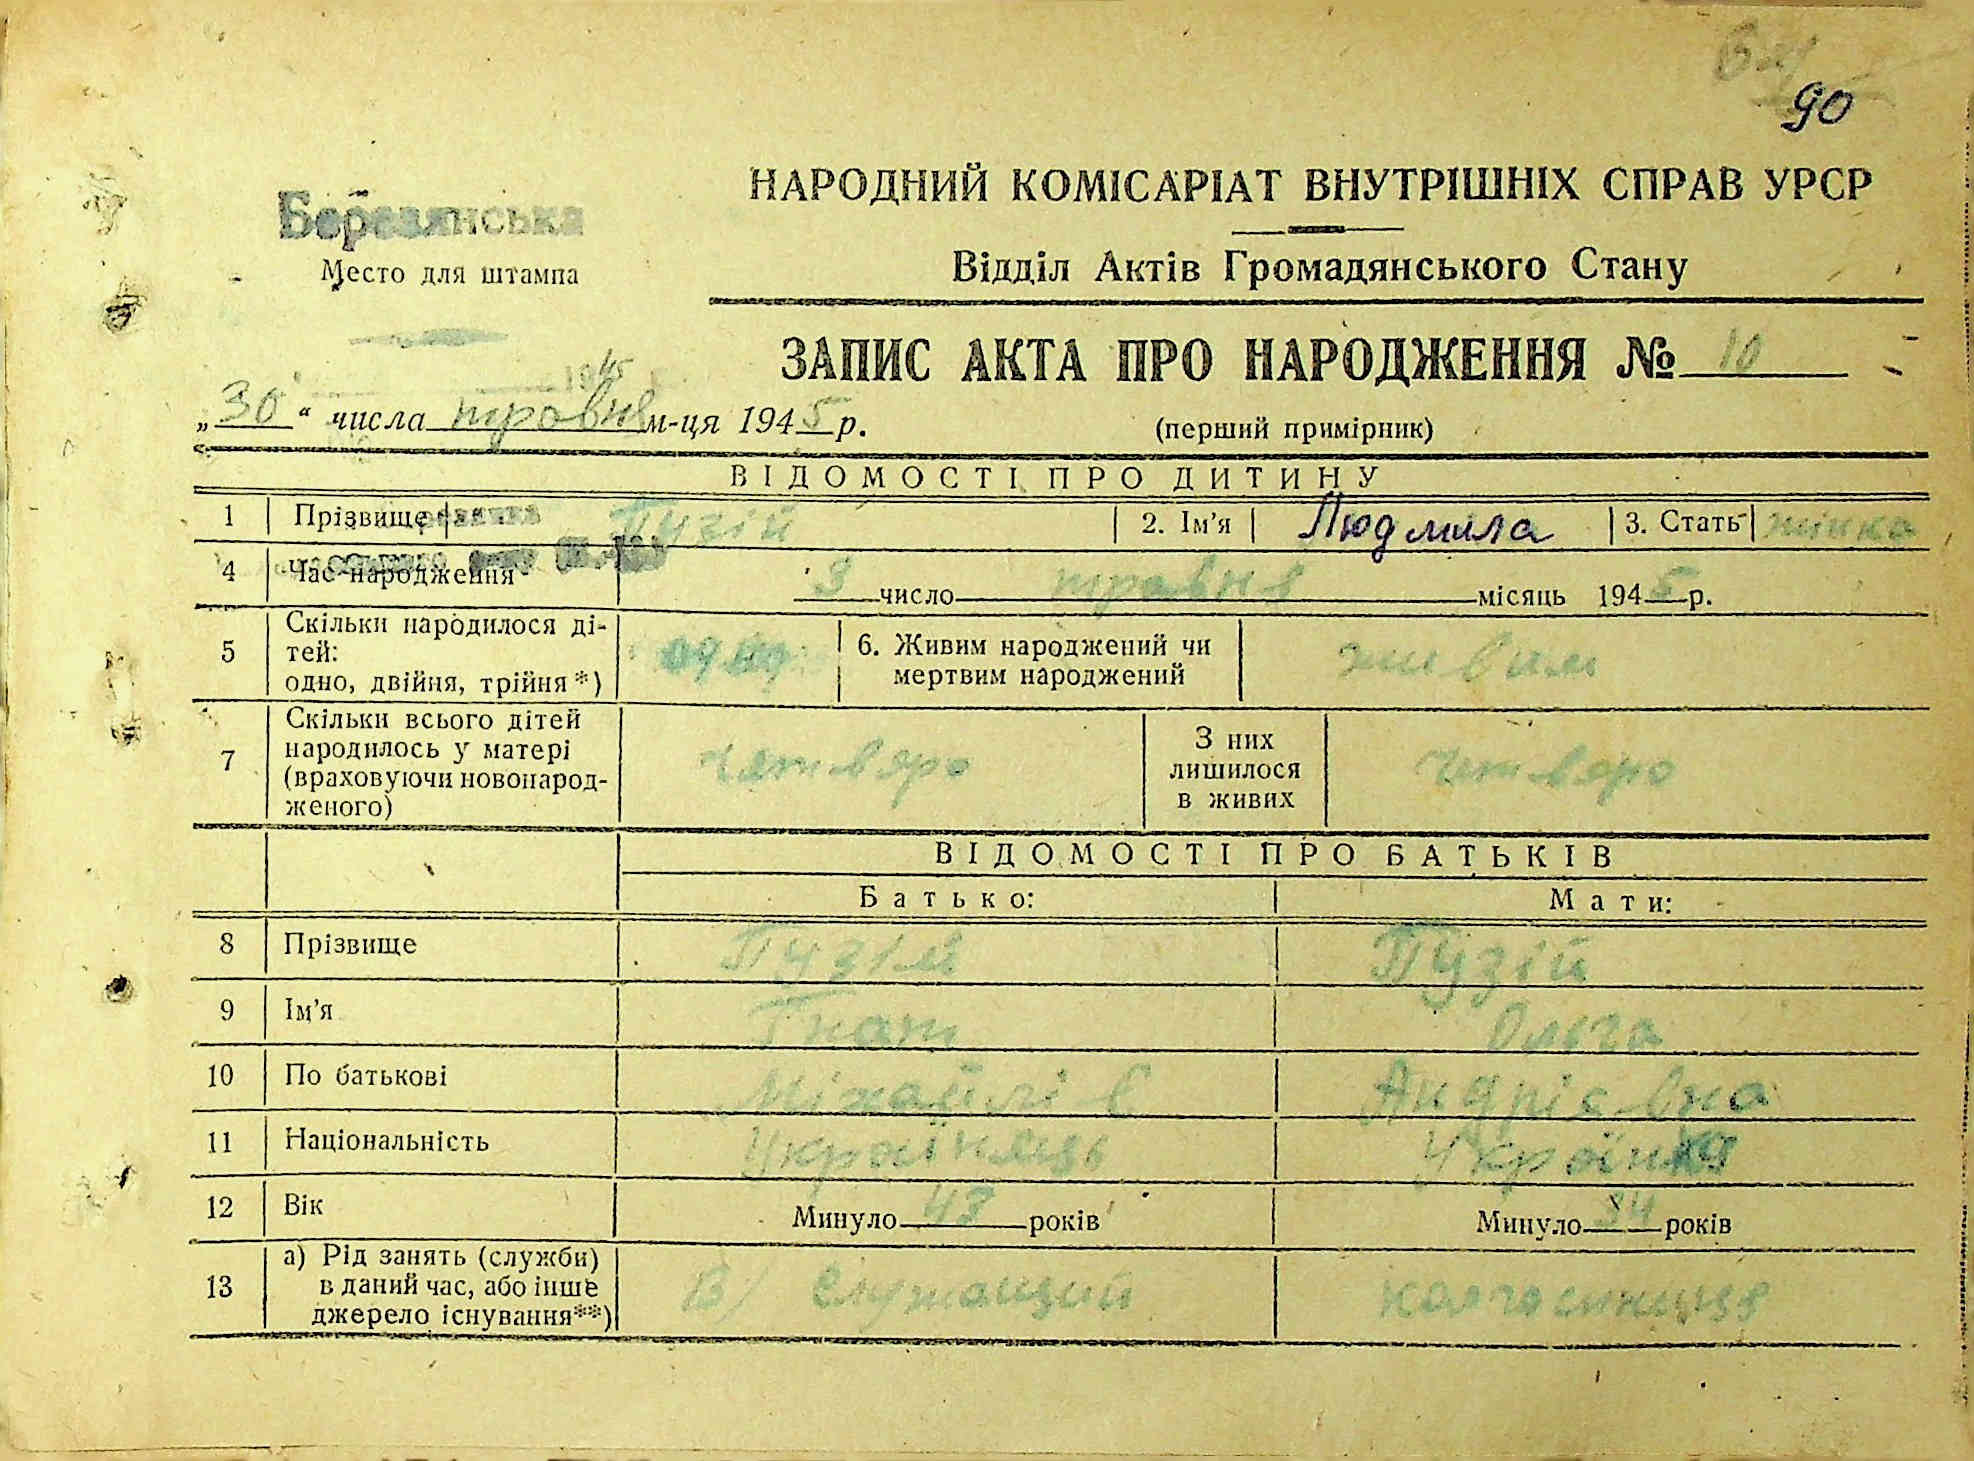 90
НАРОДНИЙ КОМІСАРІАТ ВНУТРІШНІХ СПРАВ УРСР
Березянська
Место для штампа
Відділ Актів Громадянського Стану
ЗАПИС АКТА ПРО НАРОДЖЕННЯ № 10
„30“ числа травня м-ця 1945 р.
(перший примірник)
ВІДОМОСТІ ПРО ДИТИНУ
1 Прізвище Пузій 2. Ім'я Людмила 3. Стать жінка
4 Час народження 3 число травня місяць 1945 р.
5 Скільки народилося ді-
тей:
одно, двійня, трійня *) одно 6. Живим народжений чи
мертвим народжений живим
7 Скільки всього дітей
народилось у матері
(враховуючи новонарод-
женого) четверо З них
лишилося
в живих четверо
ВІДОМОСТІ ПРО БАТЬКІВ
Батько: Мати:
8 Прізвище Пузій Пузій
9 Ім'я Гнат Ольга
10 По батькові Міхайлів Андріевна
11 Національність Українець Українка
12 Вік Минуло 43 років Минуло 34 років
13 а) Рід занять (служби)
в даний час, або інше
джерело існування**) В) Служащий колгоспниця